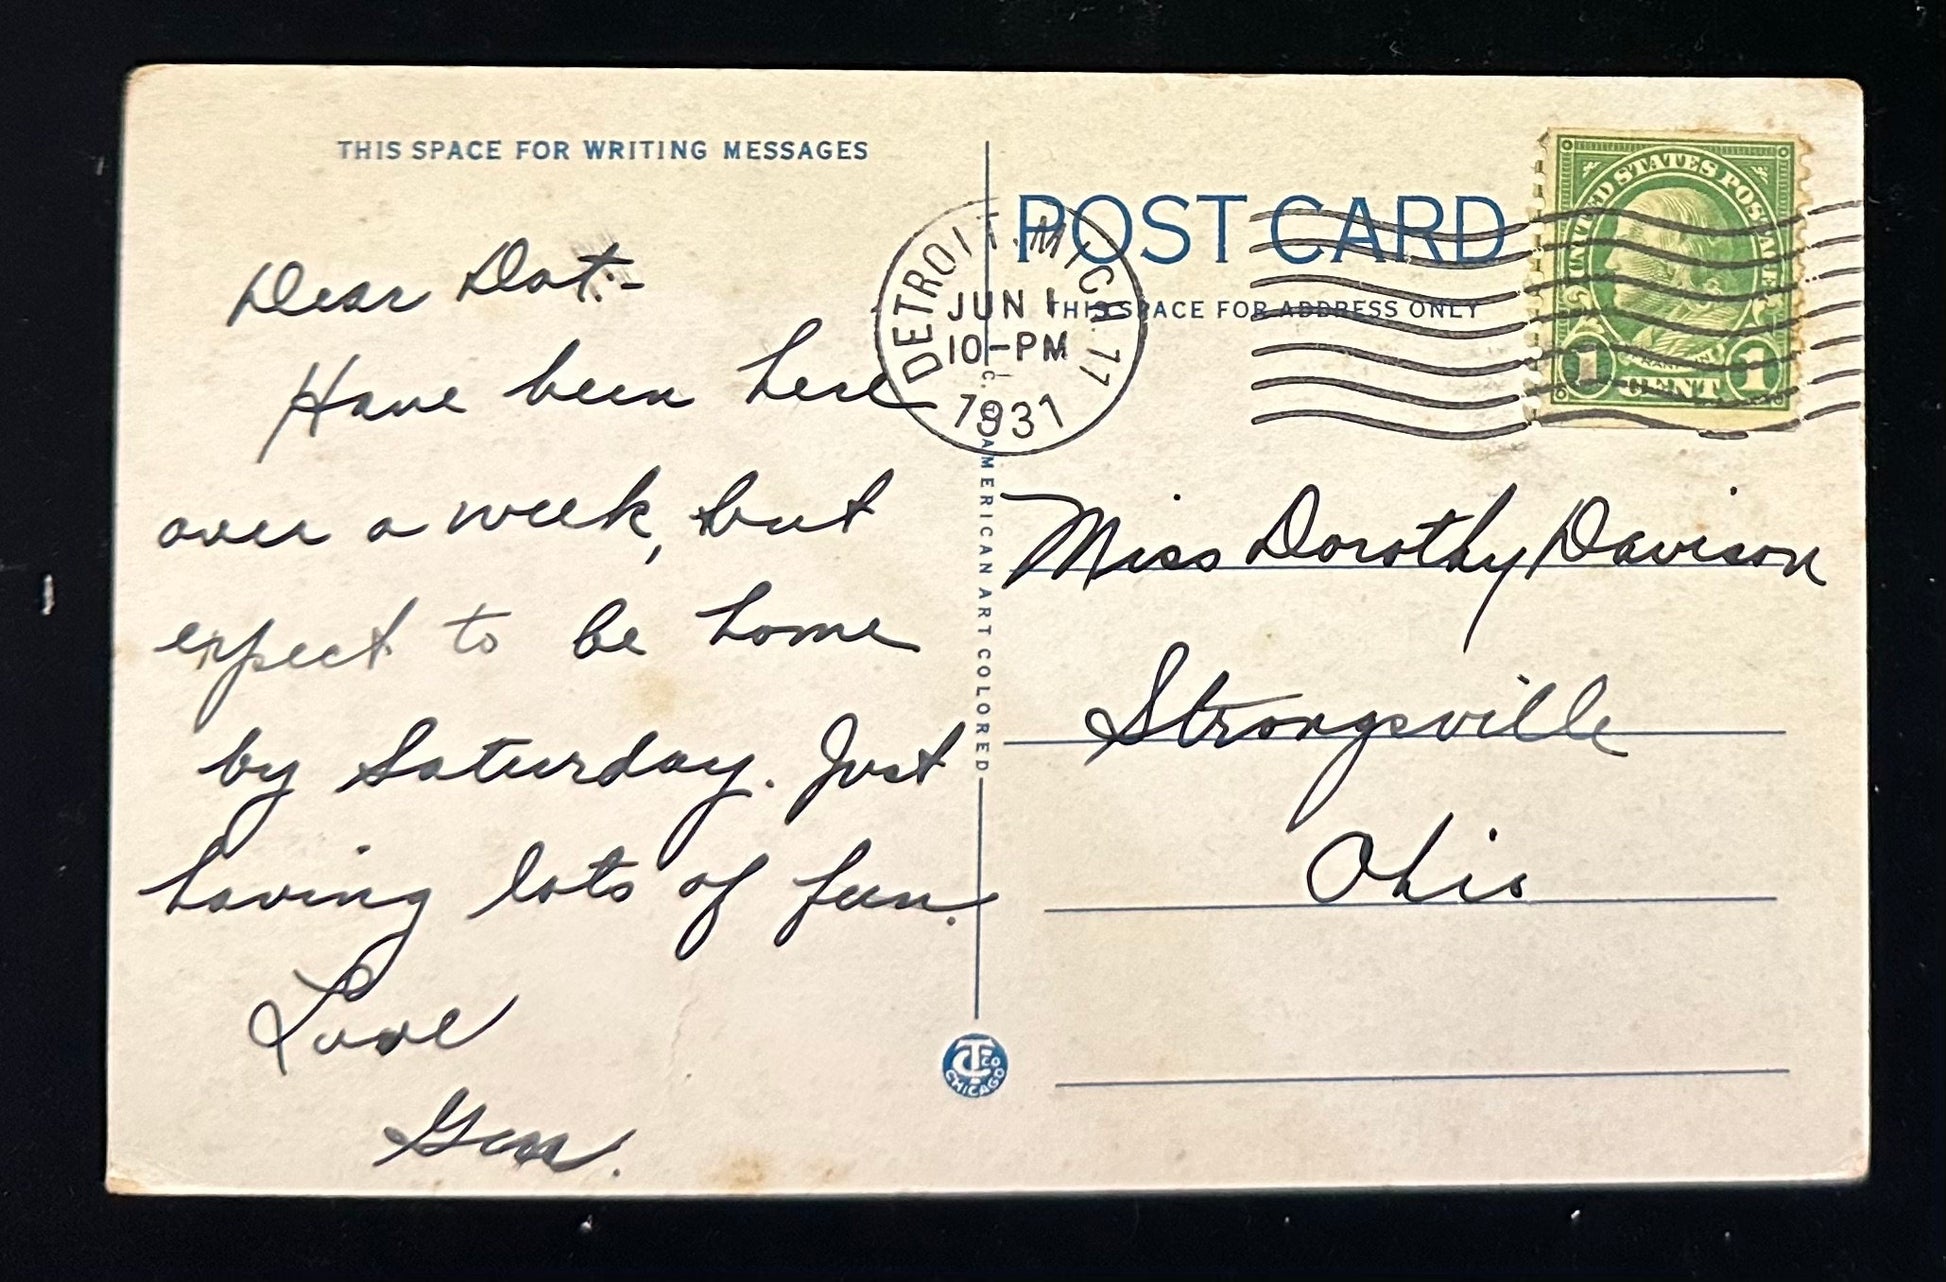 THIS SPACE FOR WRITING MESSAGES
Dear Dot:-
Have been here
over a week, but
expect to be home
by Saturday. Just
having lots of fun.
Love
C. T. AMERICAN ART COLORED
CT CO
CHICAGO
DETROIT, MICH. 77
JUN 1
10-PM
1931
POST CARD
THIS SPACE FOR ADDRESS ONLY
UNITED STATES POSTAGE
1 CENT 1
Miss Dorothy Davison
Strongsville
Ohio